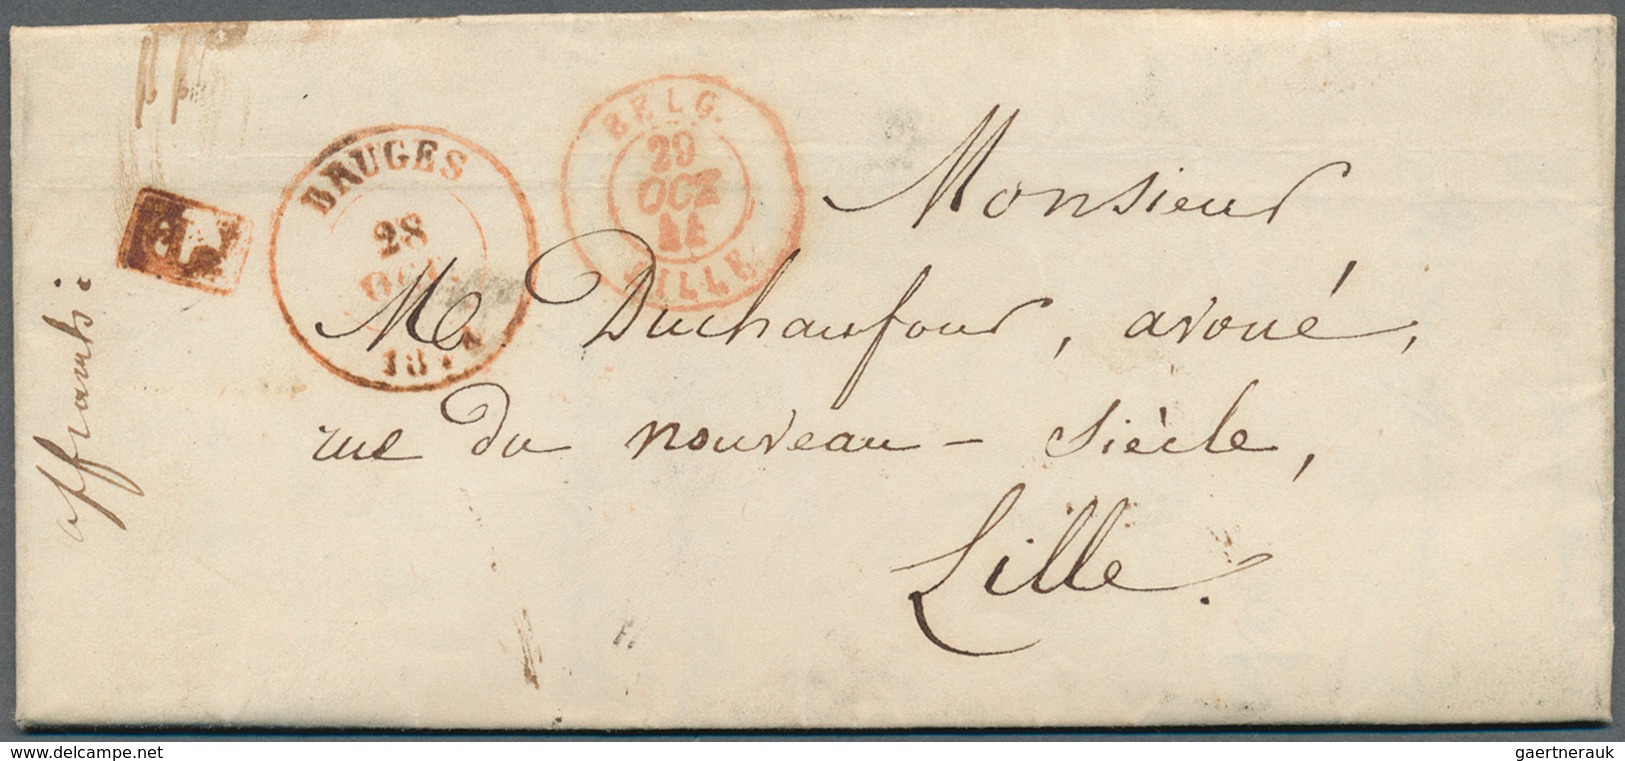 BRUGES
28
OCT.
BELG.
29
OCT
44
LILLE
Monsieur
M. Duchaufour, avoué,
rue du nouveau - siècle,
Lille.
affranchi :
www.delcampe.net
gaertnerauk